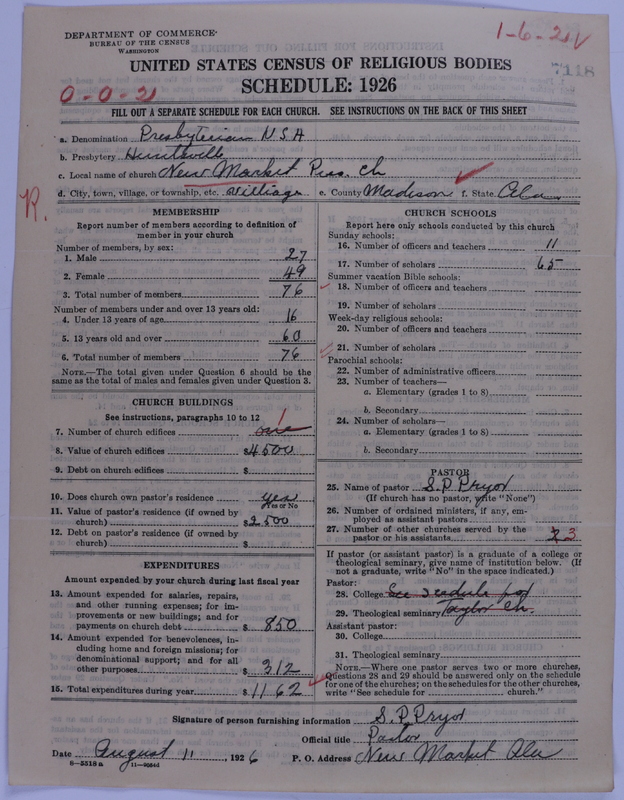 DEPARTMENT OF COMMERCE
BUREAU OF THE CENSUS
WASHINGTON
1-6-21V
7118
UNITED STATES CENSUS OF RELIGIOUS BODIES
SCHEDULE: 1926
0-0-21
FILL OUT A SEPARATE SCHEDULE FOR EACH CHURCH. SEE INSTRUCTIONS ON THE BACK OF THIS SHEET
a. Denomination Presbyterian U.S.A
b. Presbytery Huntsville
c. Local name of church New Market Pres. Ch
d. City, town, village, or township, etc. Village e. County Madison f. State Ala
R.
MEMBERSHIP
Report number of members according to definition of
member in your church
Number of members, by sex:
1. Male 27
2. Female 49
3. Total number of members 76
Number of members under and over 13 years old:
4. Under 13 years of age 16
5. 13 years old and over 60
6. Total number of members 76
NOTE.—The total given under Question 6 should be
same as the total of males and females given under Question 3.
CHURCH BUILDINGS
See instructions, paragraphs 10 to 12
7. Number of church edifices one 1
8. Value of church edifices $4500
9. Debt on church edifices $
10. Does church own pastor's residence yes
Yes or No
11. Value of pastor's residence (if owned by
church) $2500
12. Debt on pastor's residence (if owned by
church) $
EXPENDITURES
Amount expended by your church during last fiscal year
13. Amount expended for salaries, repairs,
and other running expenses; for im-
provements or new buildings; and for
payments on church debt $850
14. Amount expended for benevolences, in-
cluding home and foreign missions; for
denominational support; and for all
other purposes $312
15. Total expenditures during year $1162
CHURCH SCHOOLS
Report here only schools conducted by this church
Sunday schools:
16. Number of officers and teachers 11
17. Number of scholars 65
Summer vacation Bible schools:
18. Number of officers and teachers
19. Number of scholars
Week-day religious schools:
20. Number of officers and teachers
21. Number of scholars
Parochial schools:
22. Number of administrative officers
23. Number of teachers—
a. Elementary (grades 1 to 8)
b. Secondary
24. Number of scholars—
a. Elementary (grades 1 to 8)
b. Secondary
PASTOR
25. Name of pastor S.P. Pryor
(If church has no pastor, write "None")
26. Number of ordained ministers, if any, em-
ployed as assistant pastors
27. Number of other churches served by the
pastor or his assistants 3
If pastor (or assistant pastor) is a graduate of a college or
theological seminary, give name of institution below. (If
not a graduate, write "No" in the space indicated.)
Pastor:
28. College See for
29. Theological seminary Taylor Ch.
Assistant pastor:
30. College
31. Theological seminary
NOTE.—Where one pastor serves two or more churches,
Questions 28 and 29 should be answered only on the schedule
for one of the churches; on the schedules for the other churches,
write "See schedule for church."
Signature of person furnishing information S.P. Pryor
Official title Pastor
Date August 11, 1926 P. O. Address New Market Ala
8—5518 a